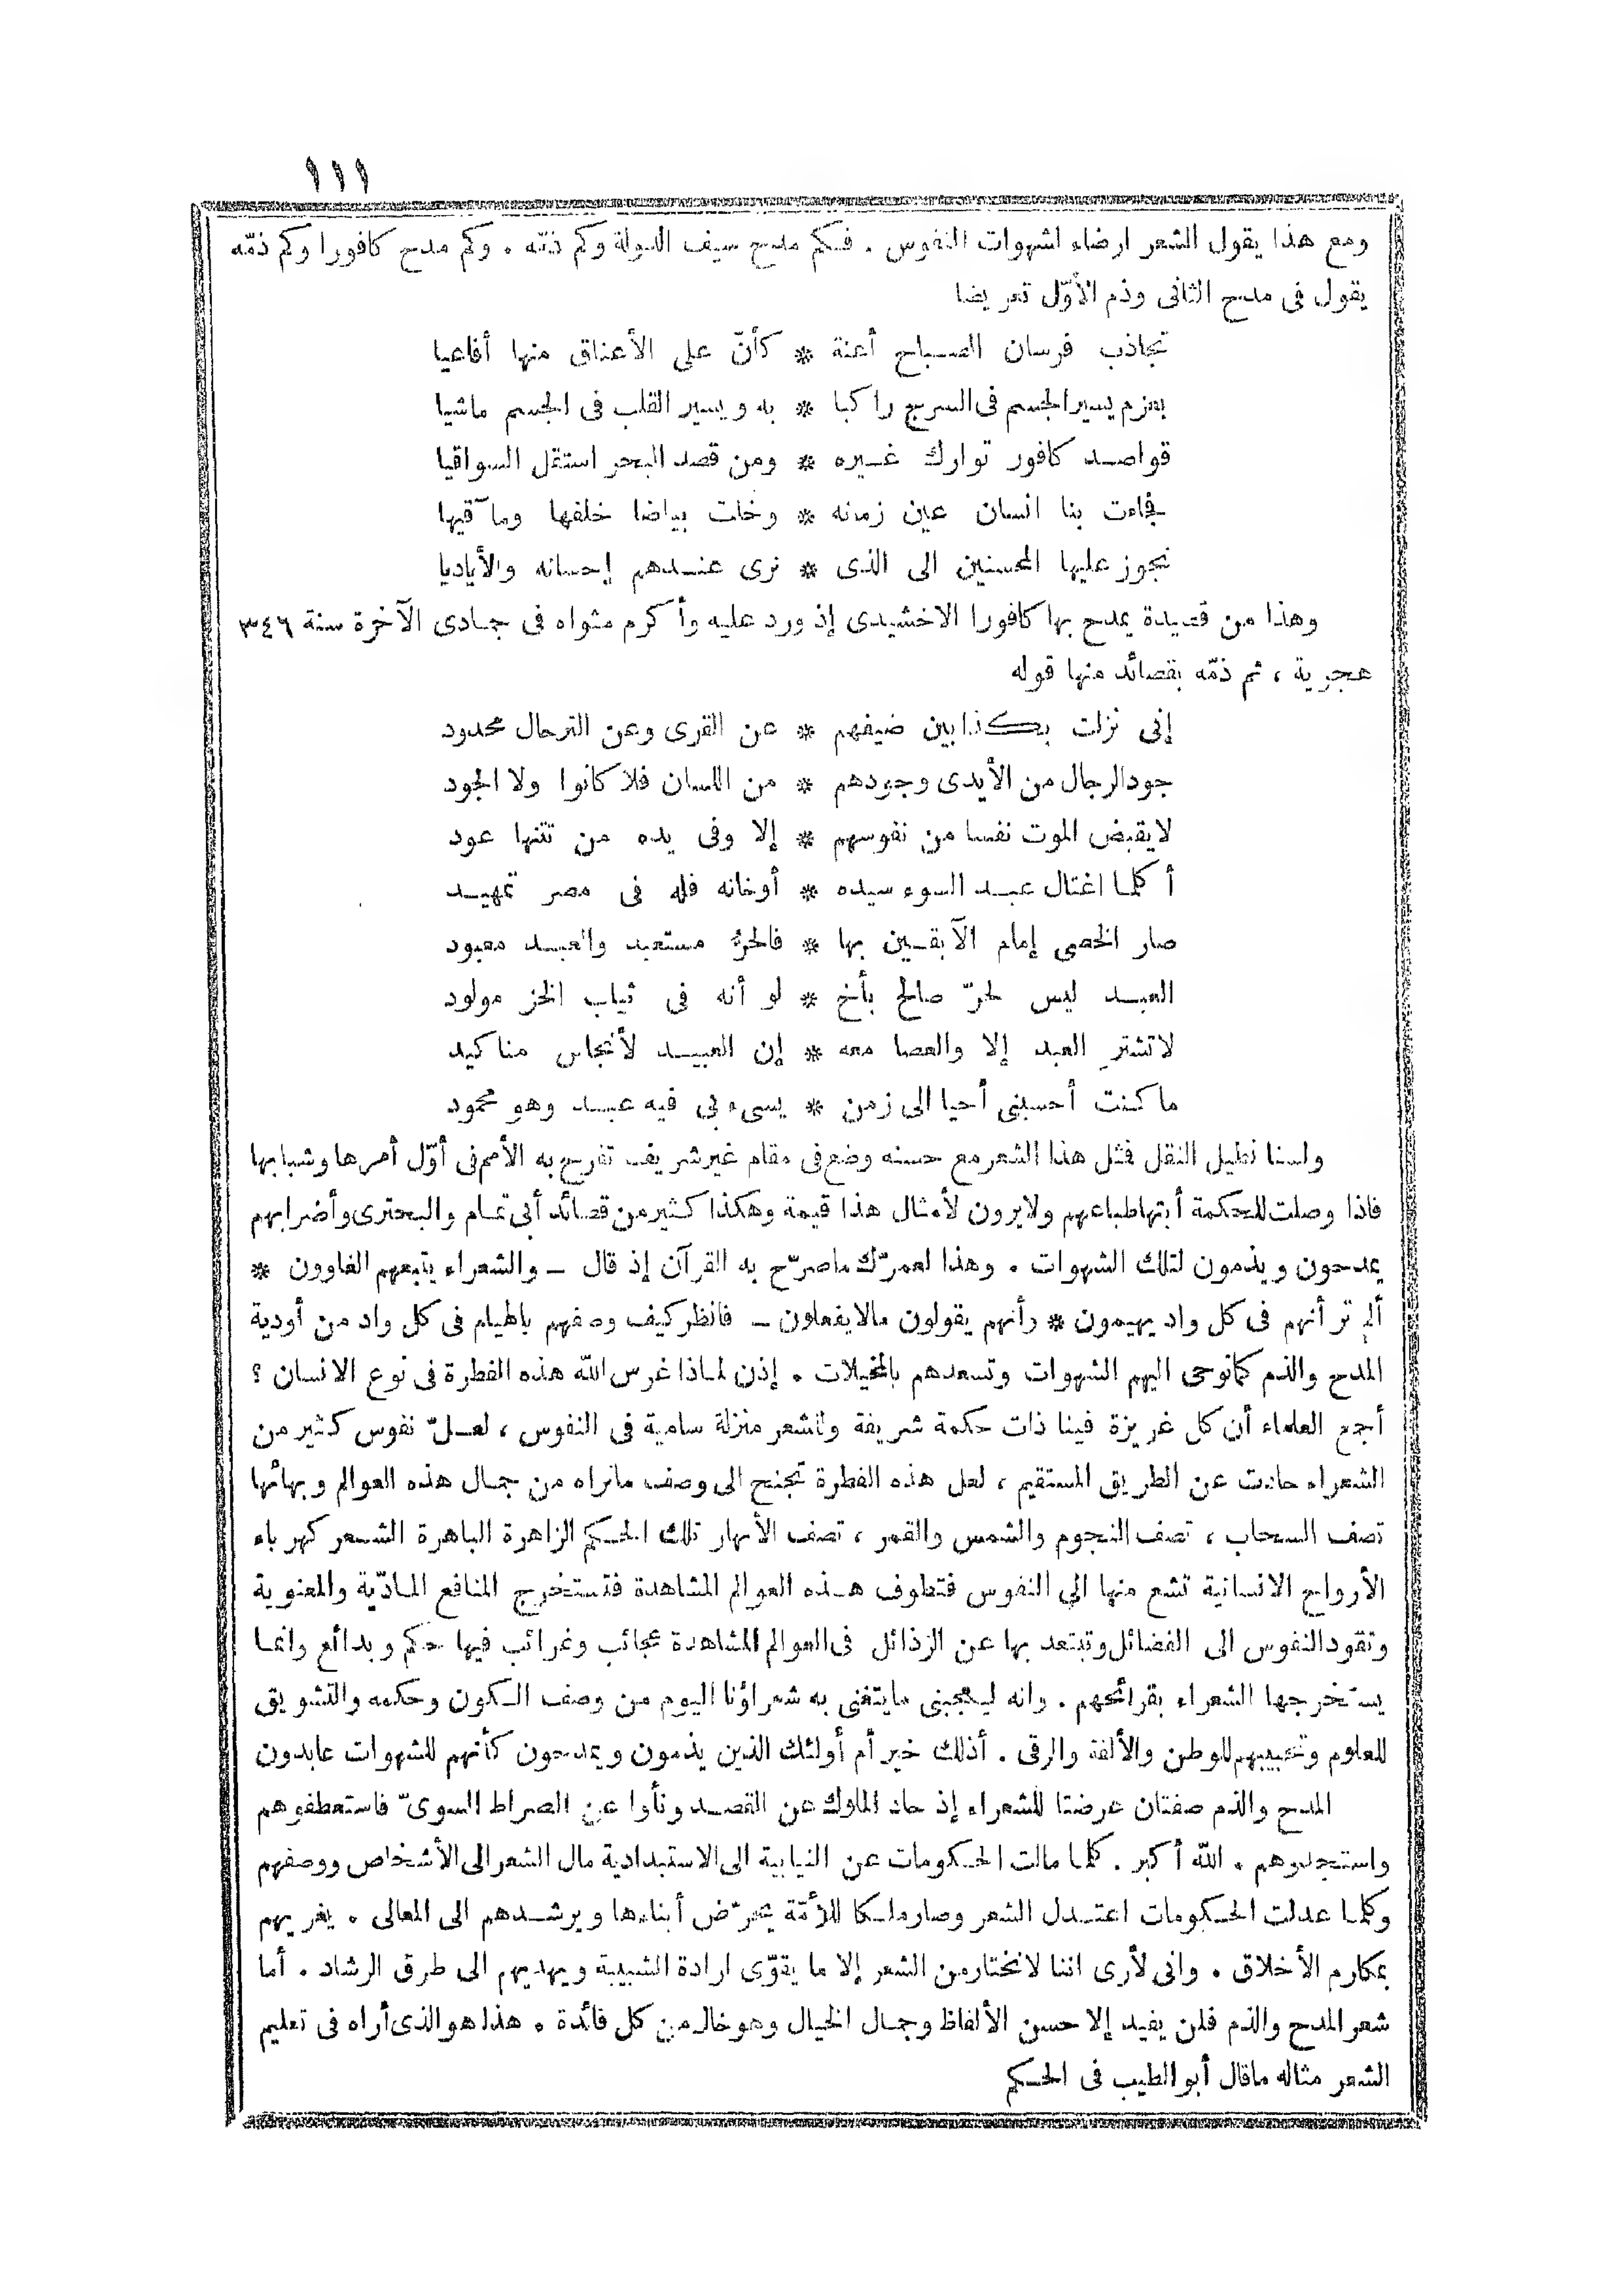 ١١١
ومع هذا يقول الشعر ارضاء لشهوات النفوس . فكم مدح سيف الدولة وكم ذمّه . وكم مدح كافورا وكم ذمّه
يقول فى مدح الثانى وذم الأوّل تعريضا
تجاذب فرسان الصباح أعنة * كأنّ على الأعناق منها أفاعيا
بعزم يسير الجسم فى السرج راكبا * به ويسير القلب فى الجسم ماشيا
قواصد كافور توارك غيره * ومن قصد البحر استقل السواقيا
فجاءت بنا انسان عين زمنه * وخلت بياضا خلفها ومآقيها
نجوز عليها المحسنين الى الذى * نرى عندهم إحسانه والأياديا
وهذا من قصيدة يمدح بها كافورا الاخشيدى إذ ورد عليه وأكرم مثواه فى جمادى الآخرة سنة ٣٤٦
هجرية ، ثم ذمّه بقصائد منها قوله
إنى نزلت بكذابين ضيفهم * عن القرى وعن الترحال محدود
جود الرجال من الأيدى وجودهم * من اللسان فلا كانوا ولا الجود
لايقبض الموت نفسا من نفوسهم * إلا وفى يده من نتنها عود
أكلما اغتال عبد السوء سيده * أوخانه فله فى مصر تمهيد
صار الخصى إمام الآبقين بها * فالحرّ مستعبد والعبد معبود
العبد ليس لحرّ صالح بأخ * لو أنه فى ثياب الخز مولود
لاتشترِ العبد إلا والعصا معه * إن العبيد لأنجاس مناكيد
ما كنت أحسبنى أحيا الى زمن * يسىء بى فيه عبد وهو محمود
ولسنا نطيل النقل فمثل هذا الشعر مع حسنه وضع فى مقام غير شريف تفرح به الأمم فى أوّل أمرها وشبابها
فاذا وصلت للحكمة أبتها طباعهم ولايرون لأمثال هذا قيمة وهكذا كثير من قصائد أبى تمام والبحترى وأضرابهم
يمدحون ويذمون لتلك الشهوات . وهذا لعمرّك ماصرّح به القرآن إذ قال ــ والشعراء يتبعهم الغاوون *
ألم تر أنهم فى كل واد يهيمون * وأنهم يقولون مالايفعلون ــ فانظر كيف وصفهم بالهيام فى كل واد من أودية
المدح والذم كمانوحى اليهم الشهوات وتسعدهم بالمخيلات . إذن لماذا غرس الله هذه الفطرة فى نوع الانسان ؟
أجمع العلماء أن كل غريزة فينا ذات حكمة شريفة وللشعر منزلة سامية فى النفوس ، لعلّ نفوس كثير من
الشعراء حادت عن الطريق المستقيم ، لعل هذه الفطرة تجنح الى وصف مانراه من جمال هذه العوالم وبهائها
تصف السحاب ، تصف النجوم والشمس والقمر ، تصف الأنهار تلك الحكم الزاهرة الباهرة الشعر كهرباء
الأرواح الانسانية تشع منها الى النفوس فتطوف هذه العوالم المشاهدة فتستخرج المنافع المادّية والمعنوية
وتقود النفوس الى الفضائل وتبتعد بها عن الرذائل فى العوالم المشاهدة عجائب وغرائب فيها حكم وبدائع وانما
يستخرجها الشعراء بقرائحهم . وانه ليعجبنى مايتغنى به شعراؤنا اليوم من وصف الكون وحكمه والتشويق
للعلوم وتحبيبهم للوطن والألفة والرقى . أذلك خير أم أولئك الذين يذمون ويمدحون كأنهم للشهوات عابدون
المدح والذم صفتان عرضتا للشعراء إذ حاد الملوك عن القصد ونأوا عن الصراط السوىّ فاستعطفوهم
واستجدوهم . الله أكبر . كلما مالت الحكومات عن النيابية الى الاستبدادية مال الشعر الى الأشخاص ووصفهم
وكلما عدلت الحكومات اعتدل الشعر وصار ملكا للأمّة يحرّض أبناءها ويرشدهم الى المعالى . يغريهم
بمكارم الأخلاق . وانى لأرى اننا لانختار من الشعر إلا ما يقوّى ارادة الشبيبة ويهديهم الى طرق الرشاد . أما
شعر المدح والذم فلن يفيد إلا حسن الألفاظ وجمال الخيال وهو خال من كل فائدة . هذا هو الذى أراه فى تعليم
الشعر مثاله ماقال أبو الطيب فى الحكم